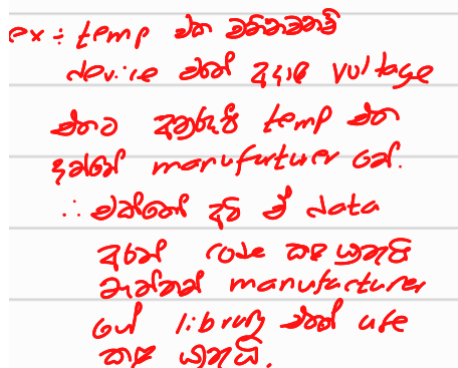 ex ÷ temp එක මනිනවනම්
device එකේ අදාල voltage
එකට අනුරූපී temp එක
දන්නේ manufurturer ගේ.
∴ එක්කෝ අපි ඒ data
අරන් code කළ යුතුයි
නැත්නම් manufacturer
ගේ library එකක් use
කළ යුතුයි.